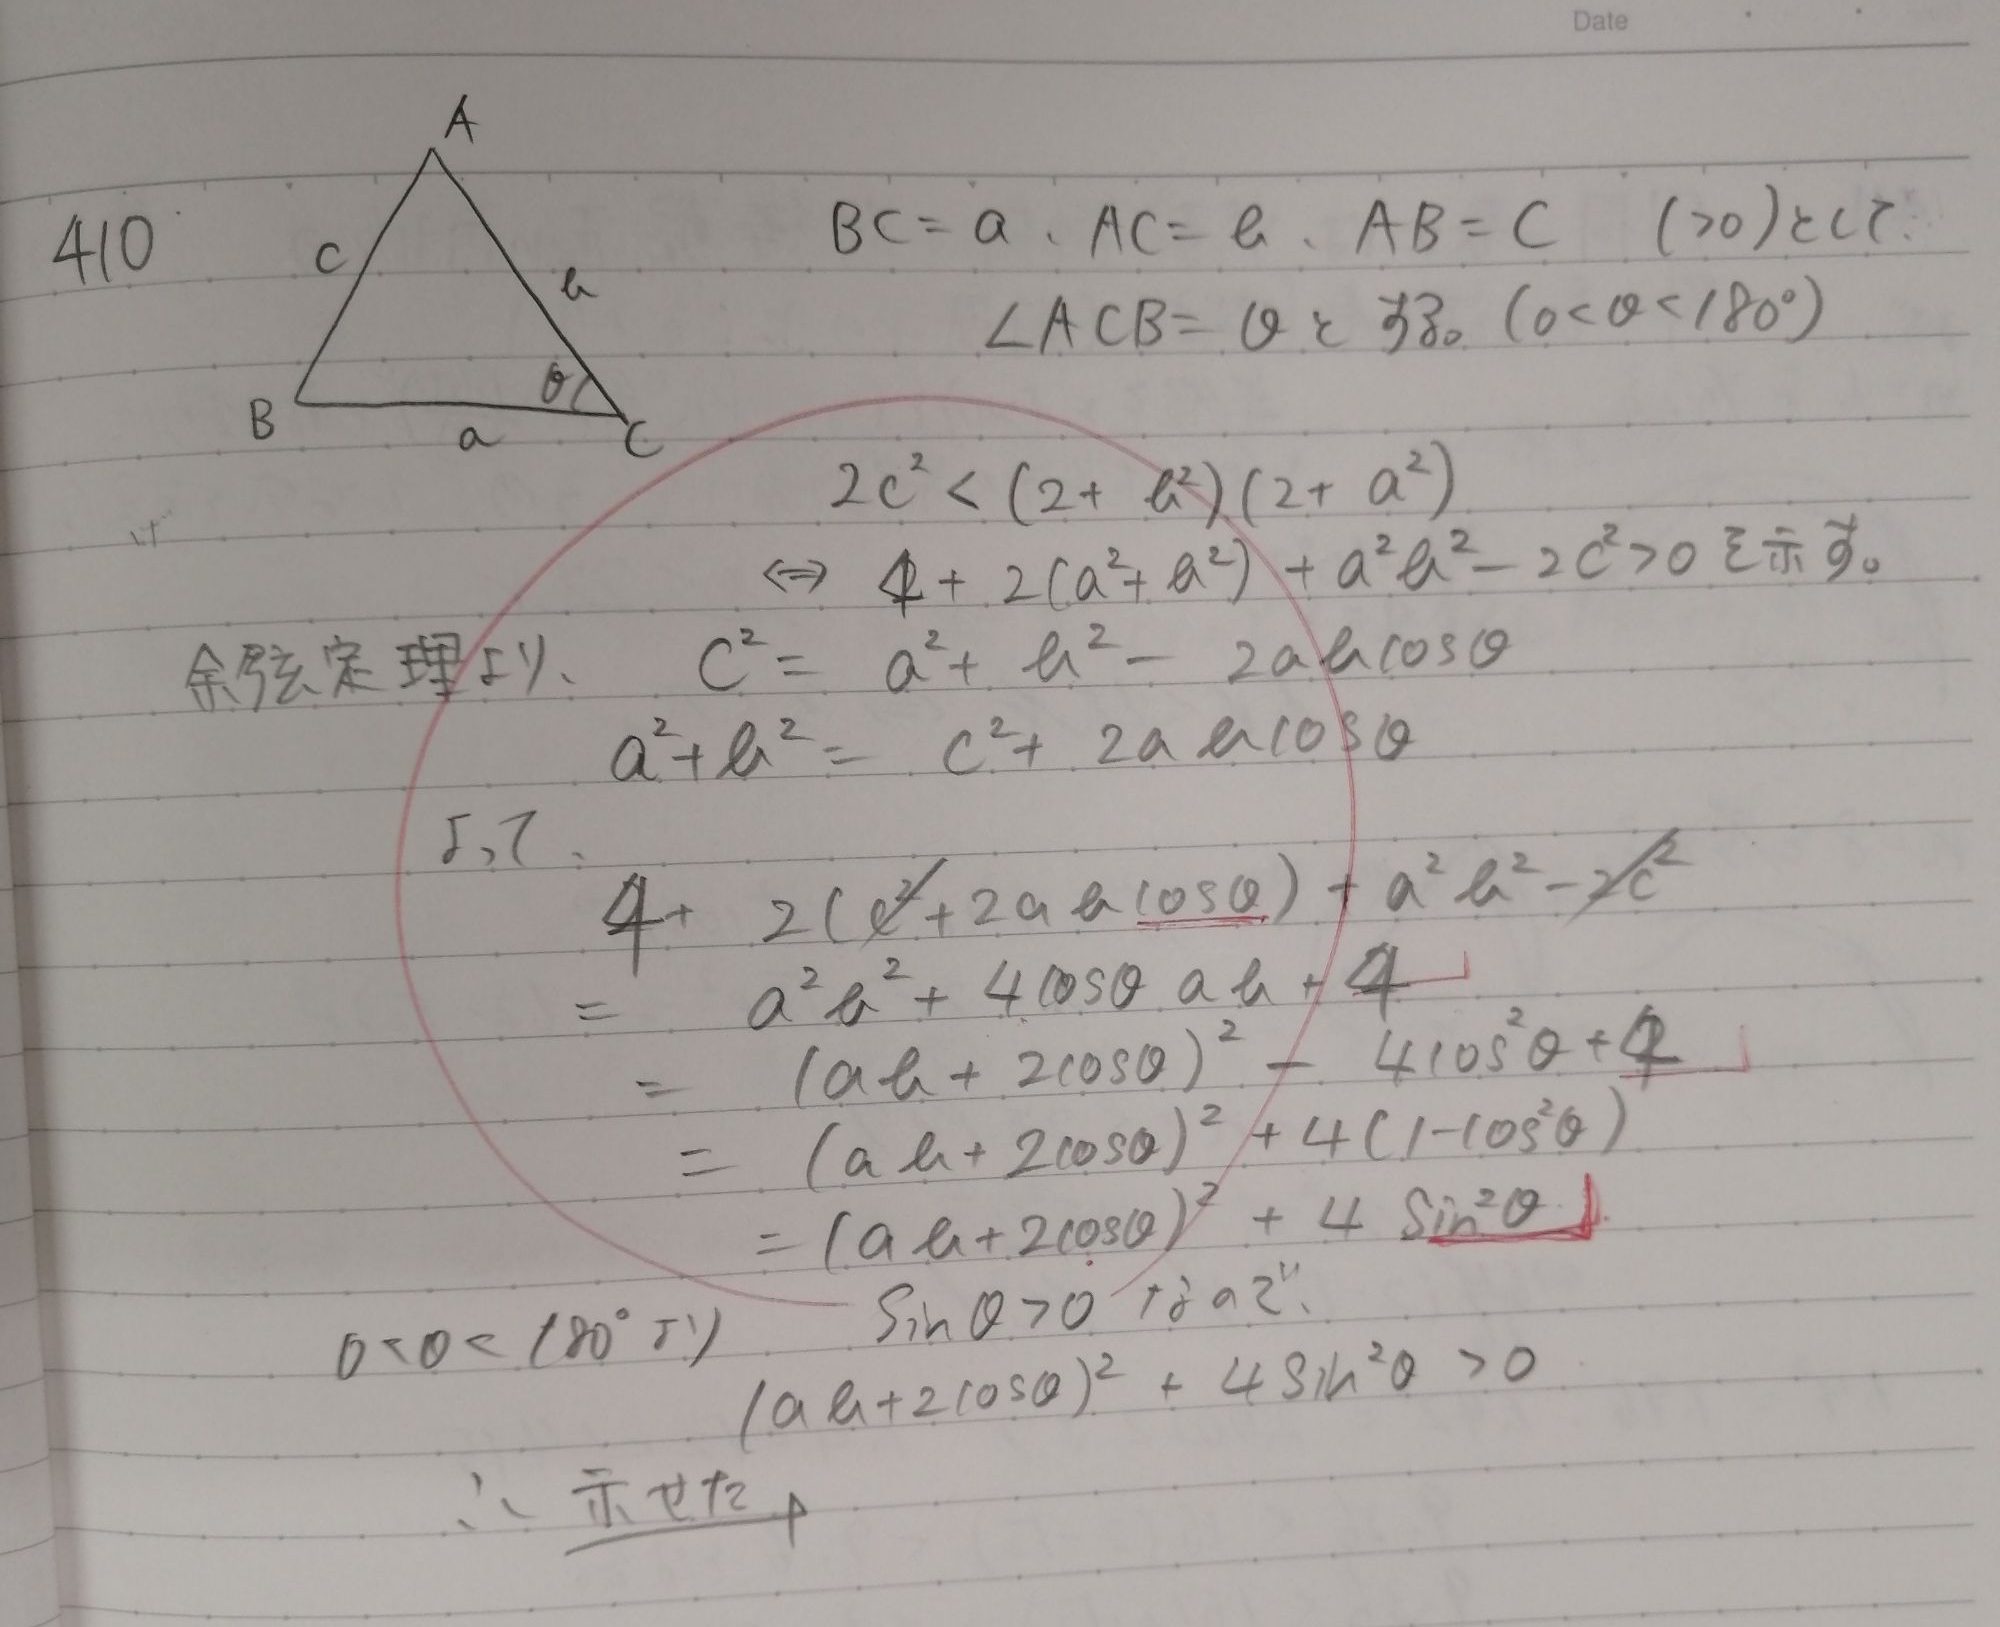 Date
A
410
c
b
B
a
C
θ
BC = a、AC = b、AB = C (>0)として
∠ACB = θとする。(0<θ<180°)
2c² < (2+ b²)(2+ a²)
⇔ 4 + 2(a²+b²) + a²b² - 2c²>0を示す。
余弦定理より、 C² = a²+ b² - 2abcosθ
a²+b² = c²+ 2abcosθ
よって、
4+ 2(c²+2abcosθ) + a²b² - 2c²
= a²b² + 4cosθab + 4
= (ab + 2cosθ)² - 4cos²θ + 4
= (ab + 2cosθ)² + 4(1-cos²θ)
= (ab+2cosθ)² + 4 Sin²θ
0<θ<180°より Sinθ>0 なので、
(ab+2cosθ)² + 4Sin²θ >0
∴ 示せた